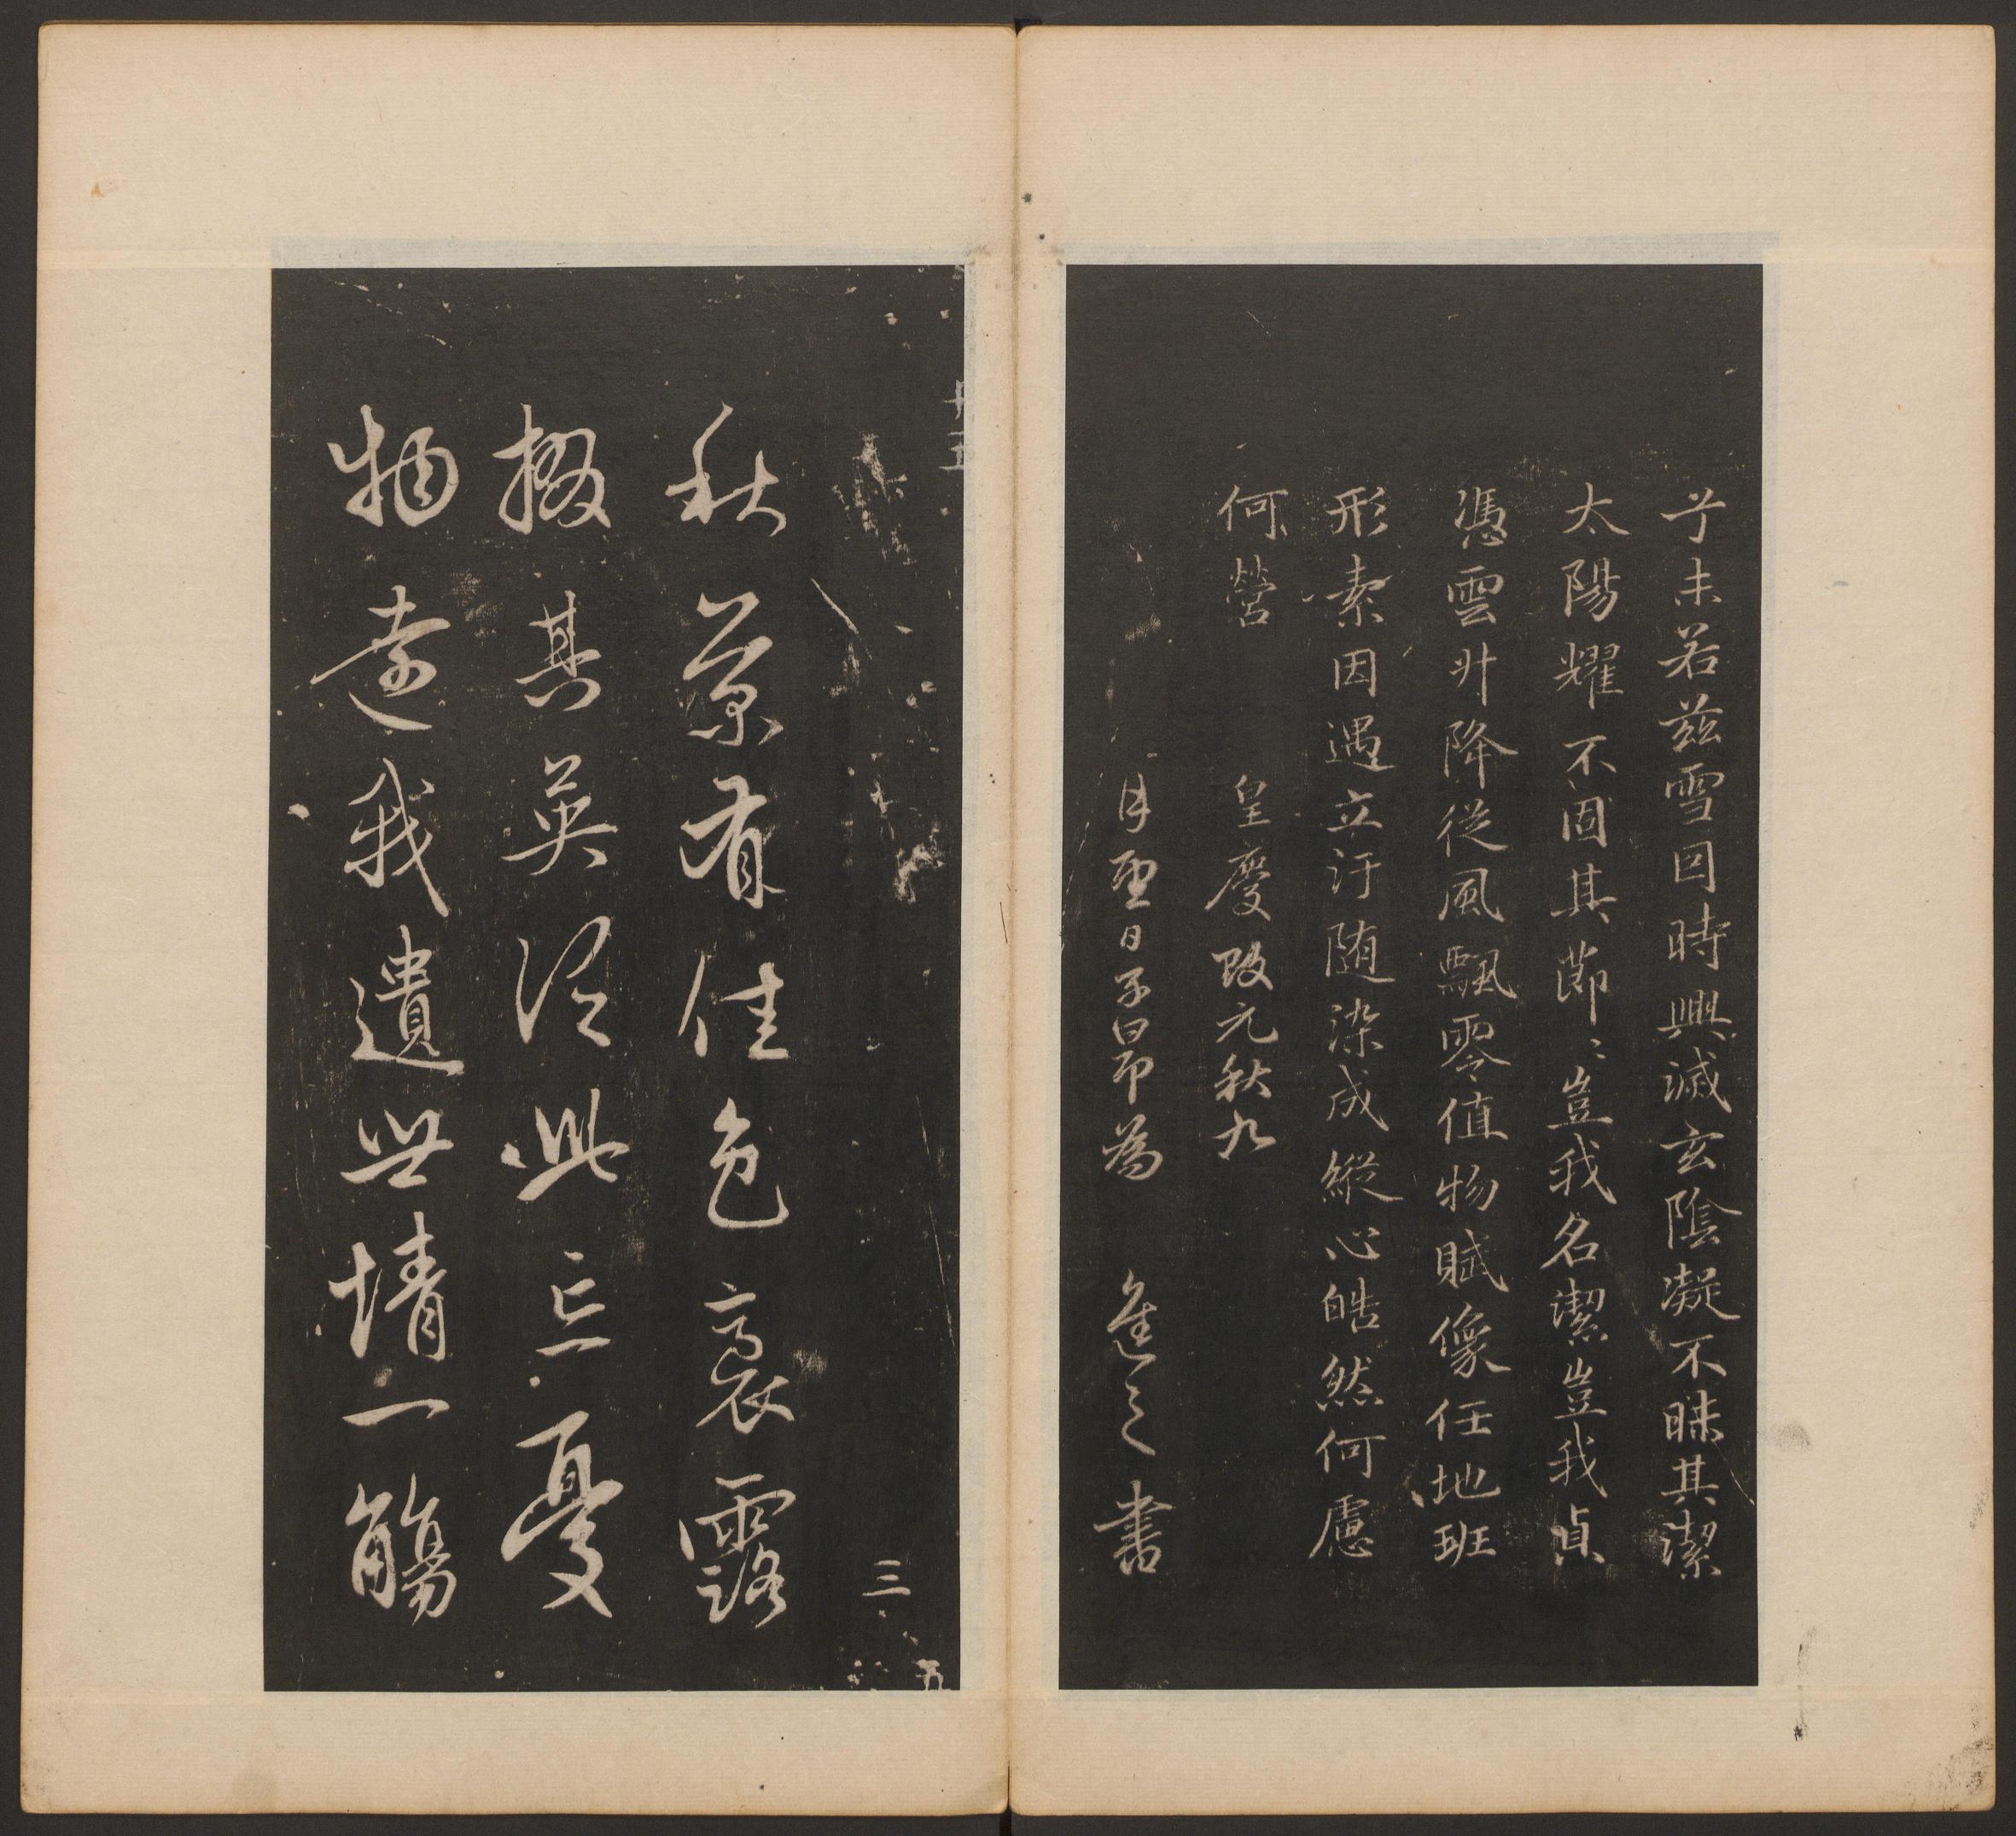 兮未若茲雪因時興滅玄陰凝不昧其潔
太陽耀不固其節〻豈我名潔豈我貞
憑雲升降從風飄零值物賦像任地班
形素因遇立汙隨染成縱心皓然何慮
何營　皇慶改元秋九
月望日子昂為　進之書
五
三
秋菊有佳色裛露
掇其英汎此忘憂
物遠我遺世情一觴